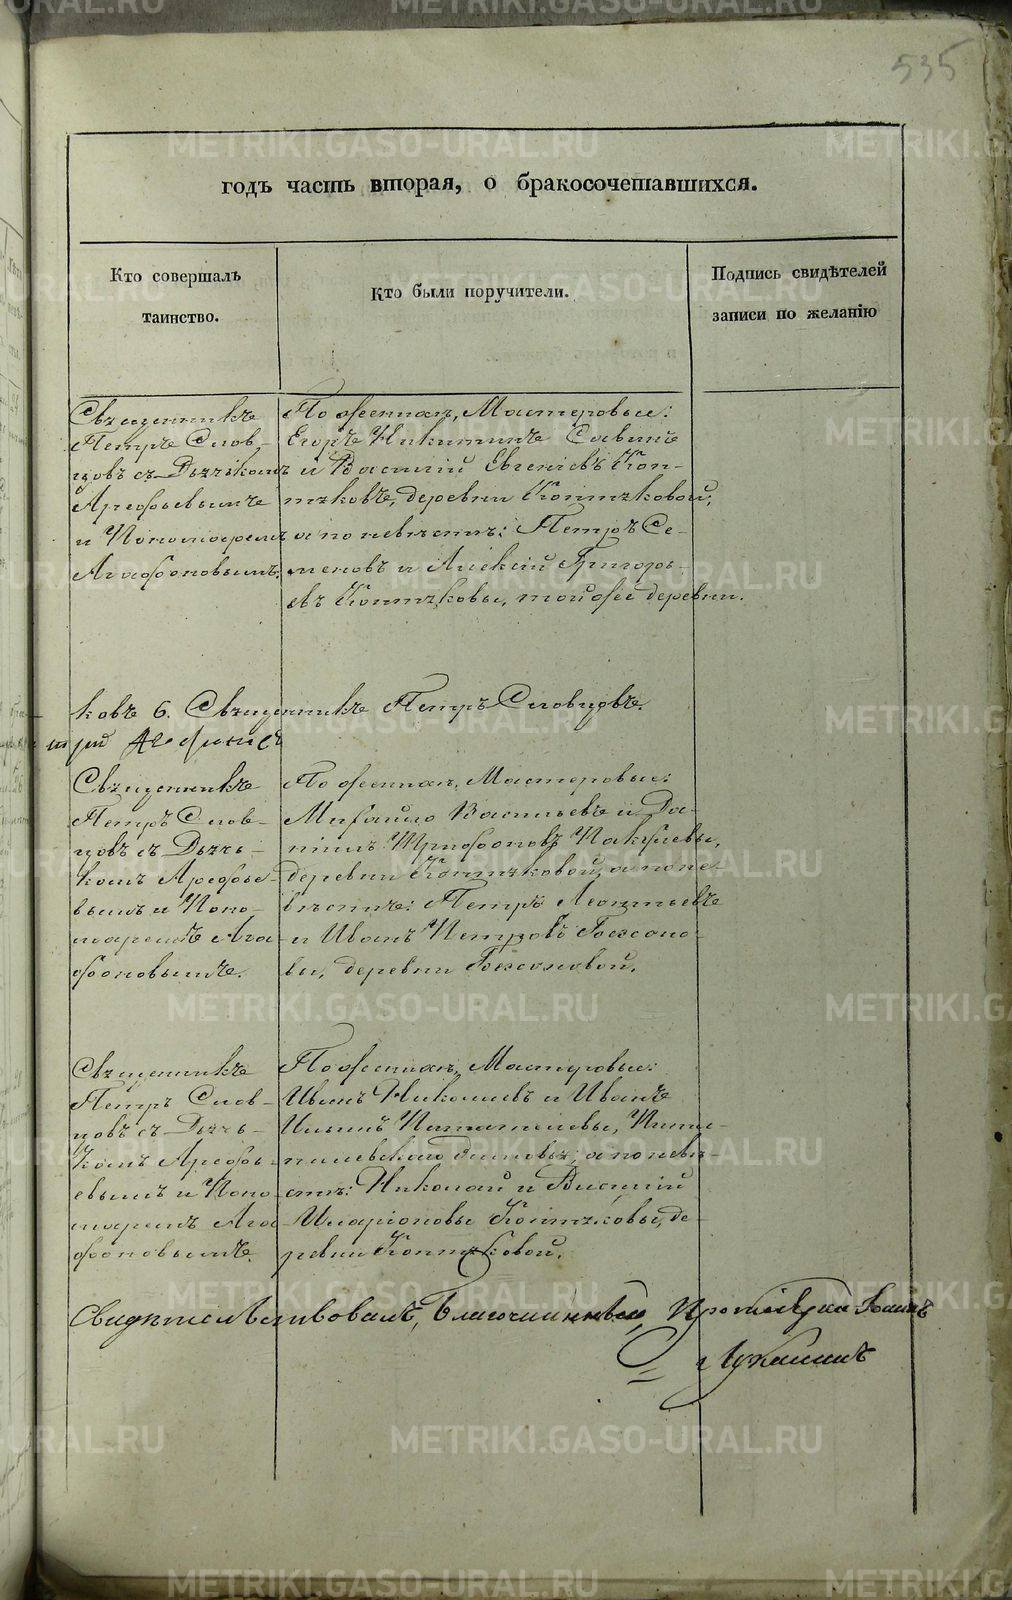 535
годъ часть вторая, о бракосочетавшихся.
Кто совершалъ таинство.
Кто были поручители.
Подпись свидѣтелей записи по желанію
Священникъ
Петръ Слов-
цовъ съ Дьячкомъ
Арефьевымъ
и Пономаремъ
Агафоновымъ.
По женихѣ, Мастеровые:
Егоръ Никитинъ Савинъ
и Василій Евгеніевъ Коп-
тяковъ, деревни Коптяковой;
а по невѣстѣ: Петръ Се-
меновъ и Алексій Григорь-
евъ Коптяковы, той же деревни.
ковъ 6. Священникъ Петръ Словцовъ.
Священникъ
Петръ Слов-
цовъ съ Дьяч-
комъ Арефье-
вымъ и Поно-
маремъ Ага-
фоновымъ.
По женихѣ, Мастеровые:
Михайло Васильевъ и Да-
Трифоновъ
деревни Коптяковой, а по не-
вѣстѣ: Петръ Леонтьевъ
и Иванъ Петровъ
вы, деревни
Священникъ
Петръ Слов-
цовъ съ Дьяч-
комъ Арефь-
евымъ и Поно-
маремъ Ага-
фоновымъ.
По женихѣ, Мастеровые:
Иванъ Николаевъ и Иванъ
Ильинъ
а по невѣ-
стѣ: Николай и Василій
Иларіоновы Коптяковы, де-
ревни Коптяковой.
Свидѣтельствовалъ, Благочинный, Протоіерей Іоаннъ
Лукашинъ
METRIKI.GASO-URAL.RU